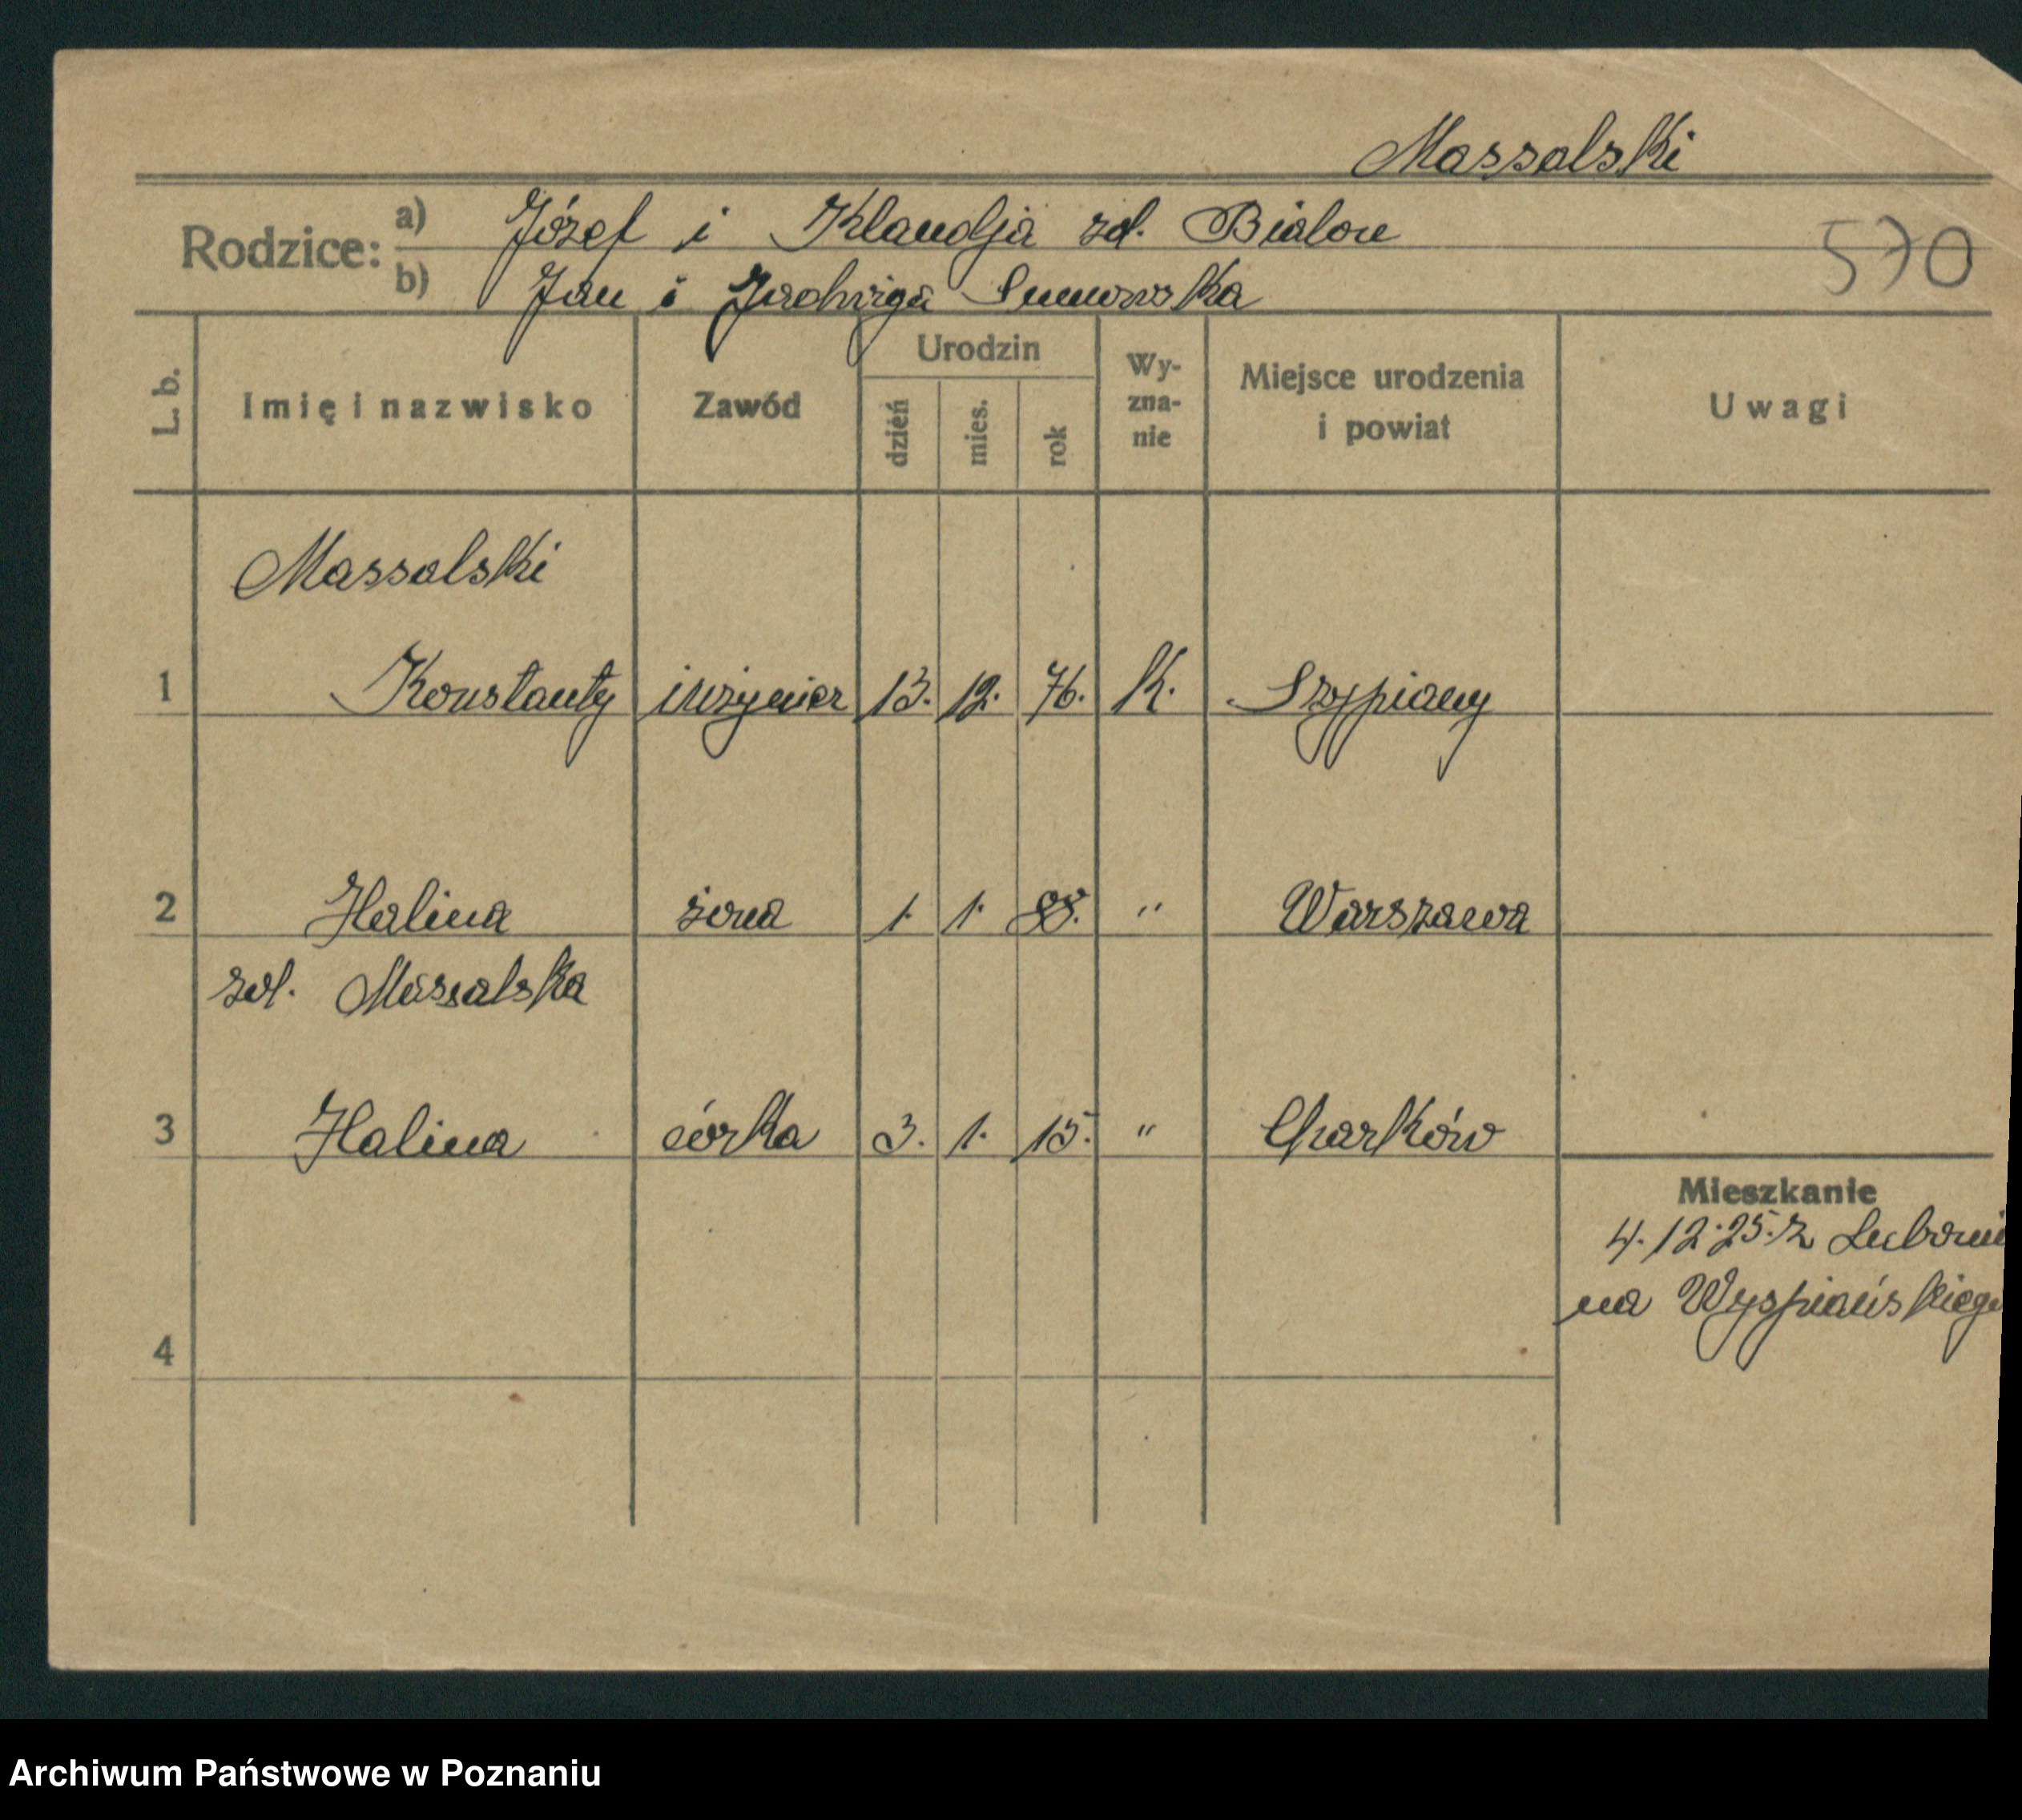 Massalski
Rodzice: a) Józef i Klaudja zd. Bialou
b) Jan i Jadwiga
570
L. b. Imię i nazwisko Zawód Urodzin dzień mies. rok Wy-zna-nie Miejsce urodzenia i powiat Uwagi
Massalski
1 Konstanty inżynier 13. 12. 76. K. Szypiany
2 Halina żona 1. 1. 88. " Warszawa
zd. Massalska
3 Halina córka 3. 1. 15. " Charków
Mieszkanie
4. 12. 25. z Luboni
na Wyspiańskiego
4
Archiwum Państwowe w Poznaniu